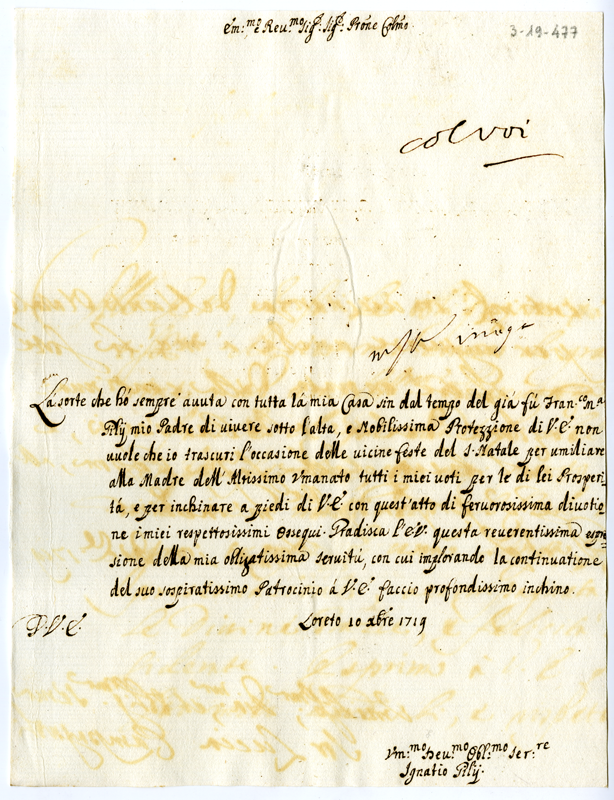 Em:mo e Reu:mo Sig:r Sig:r Prone Colmo
3-19-477
col voi
La sorte che hó sempre auuta con tutta lá mia Casa sin dal tempo del giá fú Fran:co ma
Pilij mio Padre di viuere sotto l'alta, e Nobilissima Protezzione di V.E. non
uuole che io trascuri l'occasione delle vicine feste del S. Natale per umiliare
alla Madre dell'Altissimo Vmanato tutti i miei uoti per le di lei Prosperi-
tá, e per inchinare a piedi di V.E. con quest'atto di feruorosissima diuotio
ne i miei respettosissimi Ossequi. Gradisca l'E.V. questa reuerentissima espre=
sione della mia obligatissima seruitú, con cui implorando la continuatione
del suo sospiratissimo Patrocinio á V.E. faccio profondissimo inchino.
D.V.E. Loreto 10 Xbre 1719
Vm:mo Deu:mo Obl:mo Ser:re
Ignatio Pilij.